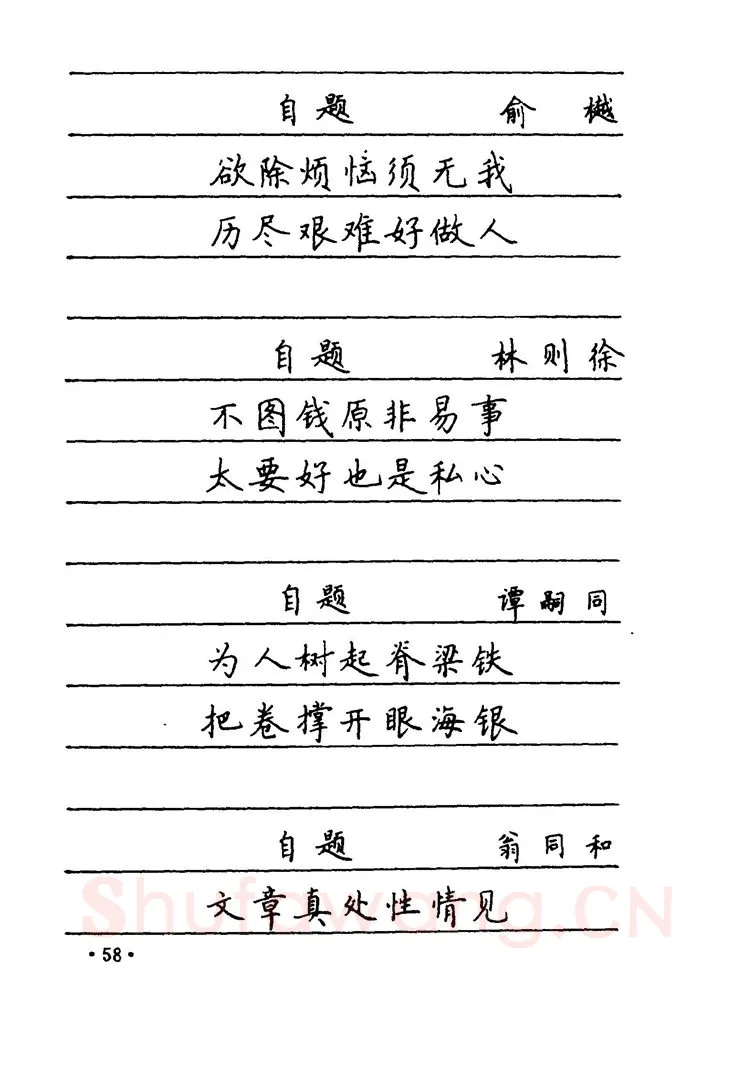 自题 俞樾
欲除烦恼须无我
历尽艰难好做人
自题 林则徐
不图钱原非易事
太要好也是私心
自题 谭嗣同
为人树起脊梁铁
把卷撑开眼海银
自题 翁同和
文章真处性情见
Shufawang.CN
·58·